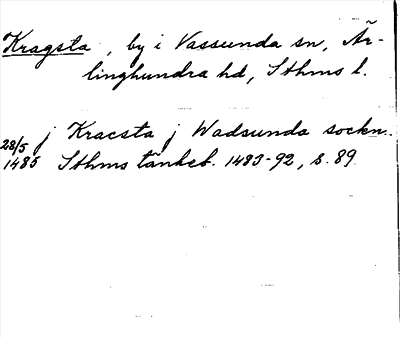 Kragsta, by i Vassunda sn, Är-
linghundra hd, Sthms l.
28/5 1485 j Kracsta j Wadsunda sockn.
Sthms tänkeb. 1483-92, s. 89.